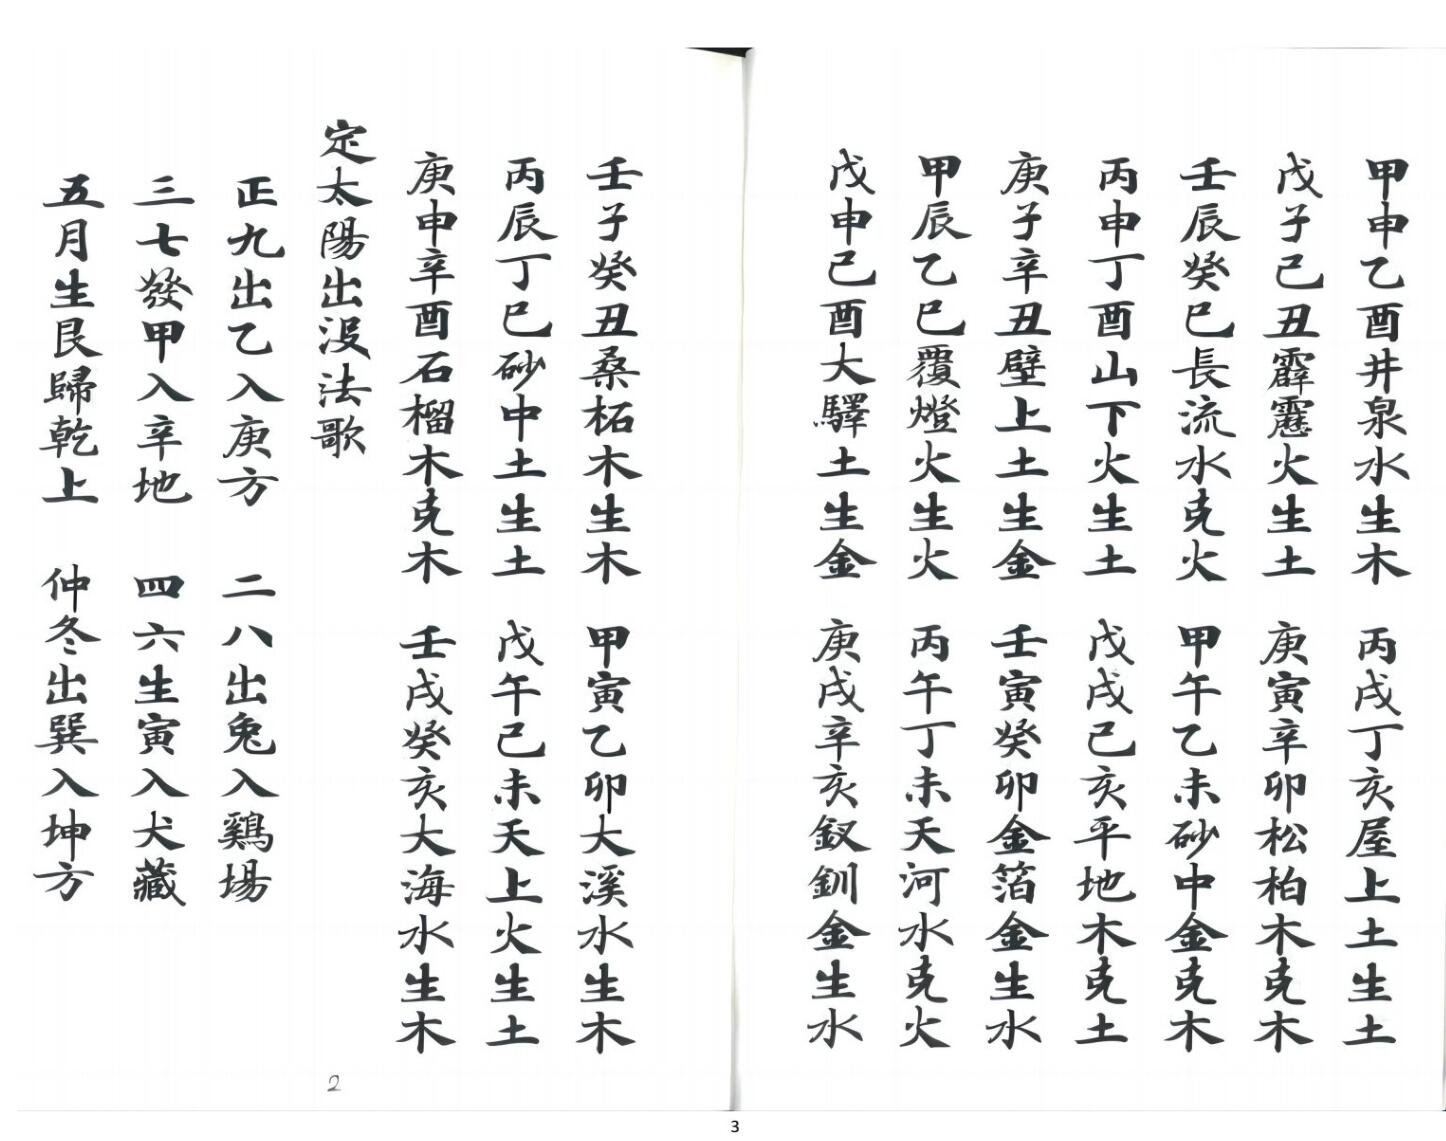 甲申乙酉井泉水生木　丙戌丁亥屋上土生土
戊子己丑霹靂火生土　庚寅辛卯松柏木克木
壬辰癸巳長流水克火　甲午乙未砂中金克木
丙申丁酉山下火生土　戊戌己亥平地木克土
庚子辛丑壁上土生金　壬寅癸卯金箔金生水
甲辰乙巳覆燈火生火　丙午丁未天河水克火
戊申己酉大驛土生金　庚戌辛亥釵釧金生水
壬子癸丑桑柘木生木　甲寅乙卯大溪水生木
丙辰丁巳砂中土生土　戊午己未天上火生土
庚申辛酉石榴木克木　壬戌癸亥大海水生木
定太陽出没法歌
正九出乙入庚方　二八出兔入鷄場
三七發甲入辛地　四六生寅入犬藏
五月生艮歸乾上　仲冬出巽入坤方
2
3